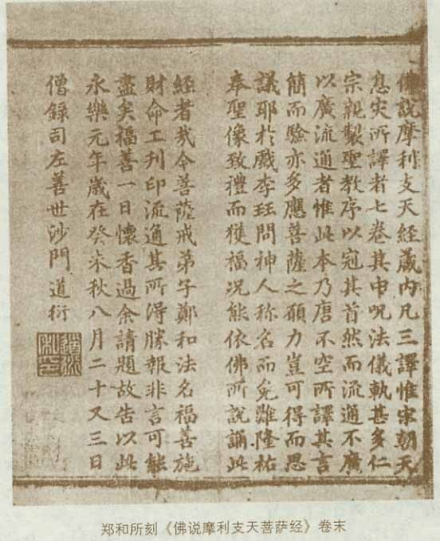 佛說摩利支天經藏內凡三譯惟宋朝天
息災所譯者七卷其中咒法儀軌甚多仁
宗親製聖教序以冠其首然而流通不廣
以廣流通者惟此本乃唐不空所譯其言
簡而驗亦多應菩薩之願力豈可得而思
議耶於戲李珏問神人稱名而免難隆祐
奉聖像致禮而獲福况能依佛所說誦此
經者㢤今菩薩戒弟子鄭和法名福善施
財命工刊印流通其所得勝報非言可能
盡矣福善一日懷香過余請題故告以此
永樂元年歲在癸未秋八月二十又三日
僧錄司左善世沙門 道衍
郑和所刻《佛说摩利支天菩萨经》卷末